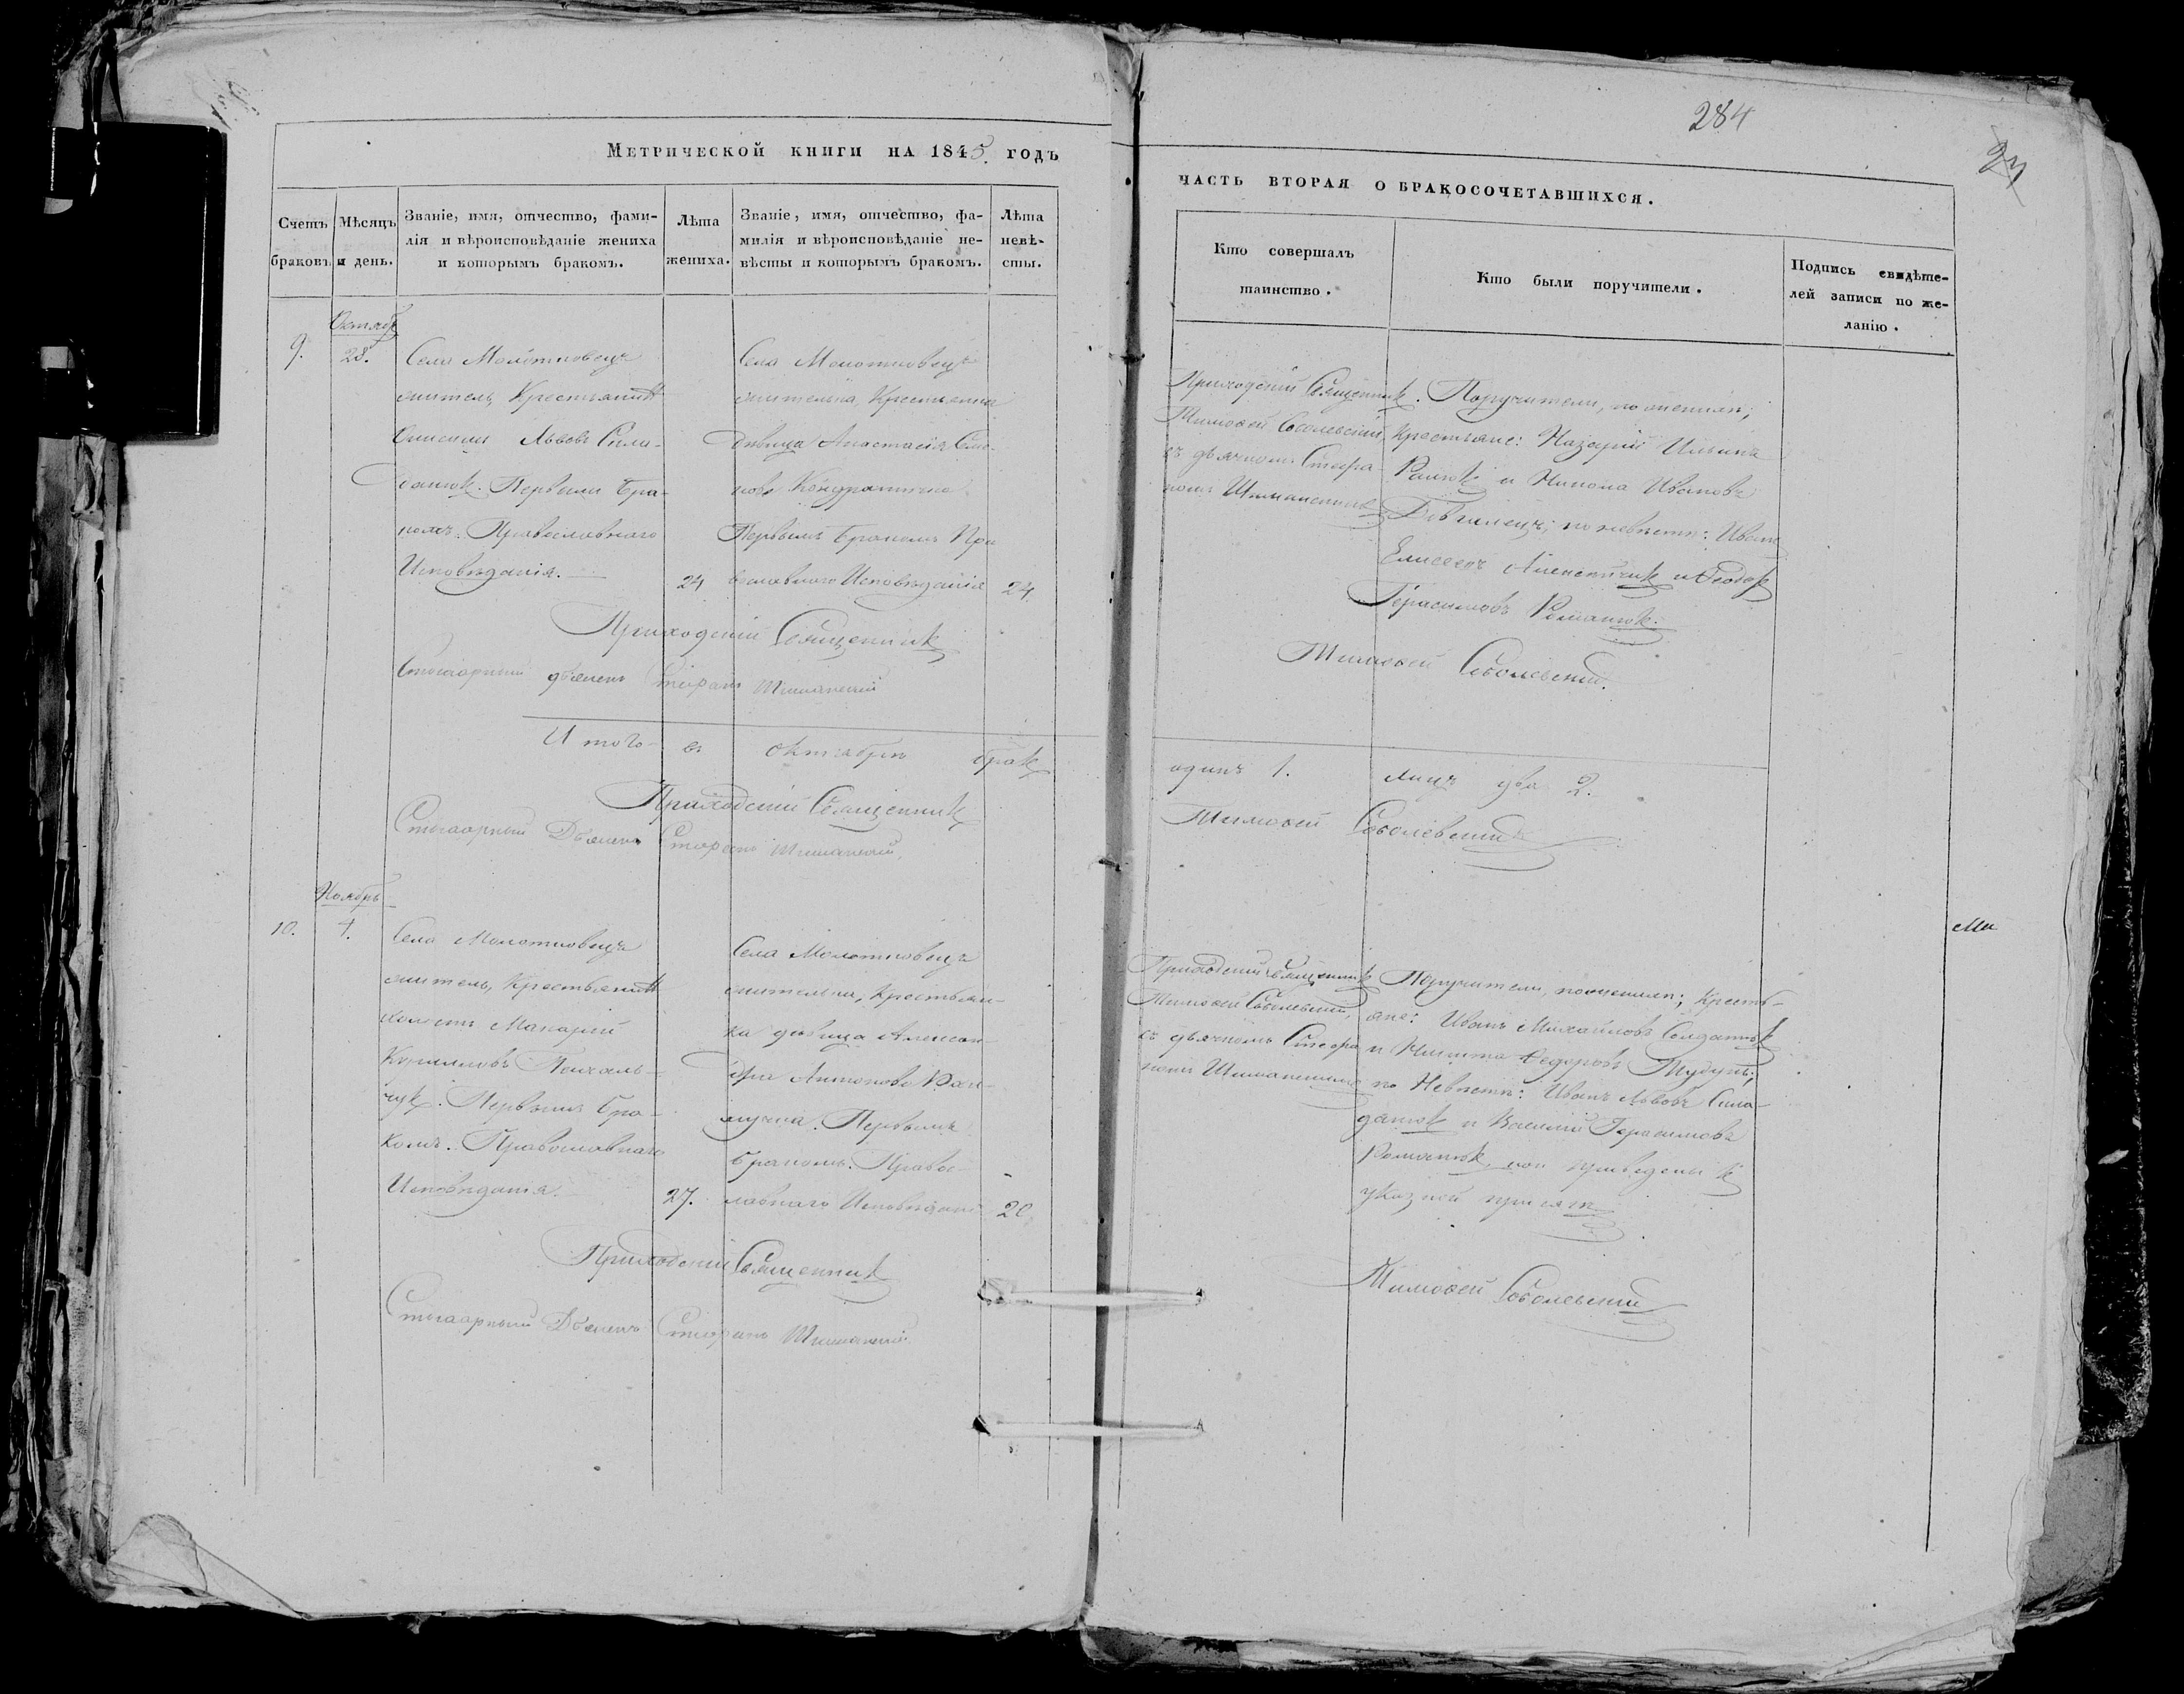 284
Метрической книги на 1845. годъ
часть вторая о бракосочетавшихся.
Счетъ браковъ
Мѣсяцъ и день.
Званіе, имя, отчество, фами-
лія и вѣроисповѣданіе жениха
и которымъ бракомъ.
Лѣта
жениха.
Званіе, имя, отчество, фа-
милія и вѣроисповѣданіе не-
вѣсты и которымъ бракомъ.
Лѣта
невѣ-
сты.
Кто совершалъ
таинство.
Кто были поручители.
Подпись свидѣте-
лей записи по же-
ланію.
Октябр
9.
28.
Села Молотковецъ
житель, Крестьянинъ
Львовъ Сила-
данюкъ. Первымъ Бра-
комъ. Православнаго
Исповѣданія.
24
Села Молотковецъ
жителька, Крестьянка
дѣвица Анастасія Си-
Первымъ Бракомъ Пра
вославнаго Исповѣданія
24
Приходскій Священникъ
Тимоѳей Соболевскій
съ дьячкомъ Стефа-
номъ Шиманскимъ
Поручители, по женихѣ;
Крестьяне: Назарій Ильинъ
и Никона Ивановъ
по невѣстѣ: Иванъ
Елисеевъ и Ѳеодоръ
Герасимовъ Романюкъ.
Приходскій Священникъ
Тимоѳей Соболевскій.
Стихарный дьячекъ Стефанъ Шиманскій
Итого въ октябрѣ бракъ
одинъ 1. лицъ два 2.
Приходскій Священникъ
Тимоѳей Соболевскій
Стихарный Дьячекъ Стефанъ Шиманскій
Ноябрь
10.
4.
Села Молотковецъ
житель, Крестьянинъ
холостъ Макарій
Кирилловъ
Первымъ Бра-
комъ. Православнаго
Исповѣданія.
27.
Села Молотковецъ
жителька, Крестьян-
ка дѣвица Алексан-
дра Антонова
Первымъ
Бракомъ. Правос-
лавнаго Исповѣданія
20
Приходскій Священникъ
Тимоѳей Соболевскій,
съ дьячкомъ Стефа-
номъ Шиманскимъ
Поручители, по женихѣ; Кресть-
яне: Иванъ Михайловъ Солданюкъ
и Никита Ѳедоровъ
по Невѣстѣ: Иванъ Львовъ Сила-
данюкъ и Василій Герасимовъ
Романюкъ, кои приведены къ
указной присягѣ
Приходскій Священникъ
Тимоѳей Соболевскій
Стихарный Дьячекъ Стефанъ Шиманскій